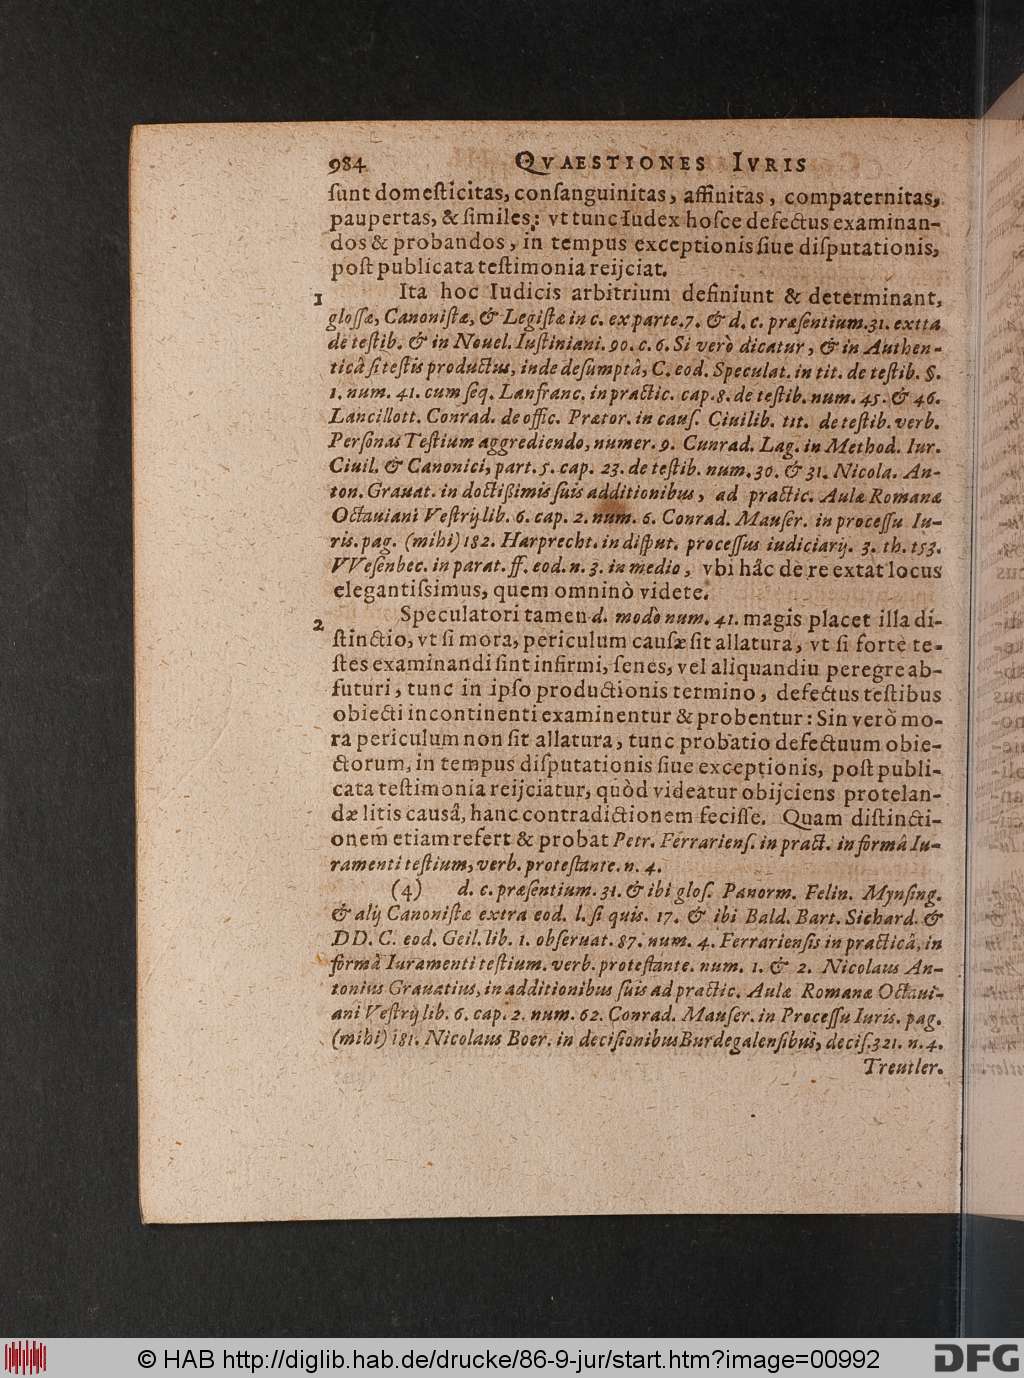 984 QVAESTIONES IVRIS
ſunt domeſticitas, conſanguinitas, affinitas, compaternitas,
paupertas, & ſimiles; vt tunc Iudex hoſce defectus examinan-
dos & probandos, in tempus exceptionis ſiue diſputationis,
poſt publicata teſtimonia reijciat.
1 Ita hoc Iudicis arbitrium definiunt & determinant,
gloſſæ, Canoniſtæ, & Legiſtæ in c. ex parte. 7. & d. c. præſentium. 31. extra
de teſtib. & in Nouel. Iuſtiniani. 90. c. 6. Si verò dicatur, & in Authen-
ticâ ſi teſtis productus, inde deſumptâ, C. eod. Speculat. in tit. de teſtib. §.
1. num. 41. cum ſeq. Lanfranc. in practic. cap. 8. de teſtib. num. 45. & 46.
Lancillott. Conrad. de offic. Prætor. in cauſ. Ciuilib. tit. de teſtib. verb.
Perſonas Teſtium aggrediendo, numer. 9. Cunrad. Lag. in Method. Iur.
Ciuil. & Canonici, part. 5. cap. 23. de teſtib. num. 30. & 31. Nicola. An-
ton. Grauat. in doctißimis ſuis additionibus, ad practic. Aulæ Romanæ
Octauiani Veſtrij lib. 6. cap. 2. num. 6. Conrad. Mauſer. in proceſſu Iu-
ris. pag. (mihi) 182. Harprecht. in diſput. proceſſus iudiciarij. 3. th. 153.
VVeſenbec. in parat. ff. eod. n. 3. in medio, vbi hâc de re extat locus
elegantiſsimus, quem omninò videte.
2 Speculatori tamen d. modò num. 41. magis placet illa di-
ſtinctio, vt ſi mora, periculum cauſæ ſit allatura, vt ſi fortè te-
ſtes examinandi ſint infirmi, ſenes, vel aliquandiu peregre ab-
futuri, tunc in ipſo productionis termino, defectus teſtibus
obiecti incontinenti examinentur & probentur: Sin verò mo-
ra periculum non ſit allatura, tunc probatio defectuum obie-
ctorum, in tempus diſputationis ſiue exceptionis, poſt publi-
cata teſtimonia reijciatur, quòd videatur obijciens protelan-
dæ litis causâ, hanc contradictionem feciſſe. Quam diſtincti-
onem etiam refert & probat Petr. Ferrarienſ. in pract. in formâ Iu-
ramenti teſtium, verb. proteſtante. n. 4.
(4) d. c. præſentium. 31. & ibi gloſ. Panorm. Felin. Mynſing.
& alij Canoniſtæ extra eod. l. ſi quis. 17. & ibi Bald. Bart. Sichard. &
DD. C. eod. Geil. lib. 1. obſeruat. 87. num. 4. Ferrarienſis in practicâ, in
formâ Iuramenti teſtium. verb. proteſtante. num. 1. & 2. Nicolaus An-
tonius Grauatius, in additionibus ſuis ad practic. Aulæ Romanæ Octaui-
ani Veſtrij lib. 6. cap. 2. num. 62. Conrad. Mauſer. in Proceſſu Iuris. pag.
(mihi) 181. Nicolaus Boer. in deciſionibus Burdegalenſibus, deciſ. 321. n. 4.
Treutler.
© HAB http://diglib.hab.de/drucke/86-9-jur/start.htm?image=00992
DFG